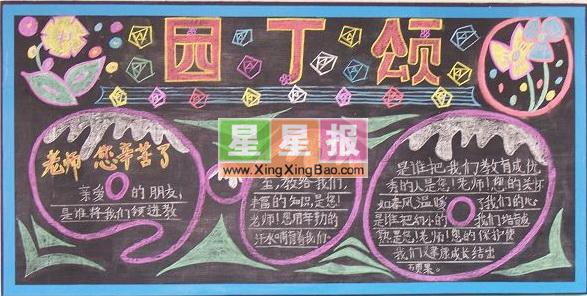 园丁颂
星星报
www.XingXingBao.com
老师 您辛苦了
亲爱的朋友,
是谁将我们领进教
室,教给我们
丰富的知识,是您!
老师!您用辛勤的
汗水哺育着我们。
是谁把我们教育成优
秀的人是您!老师!您的关怀
如春风温暖了我们的心
是谁把幼小的我们培育成
熟是您!老师!您的保护使
我们健康成长结出
硕果。